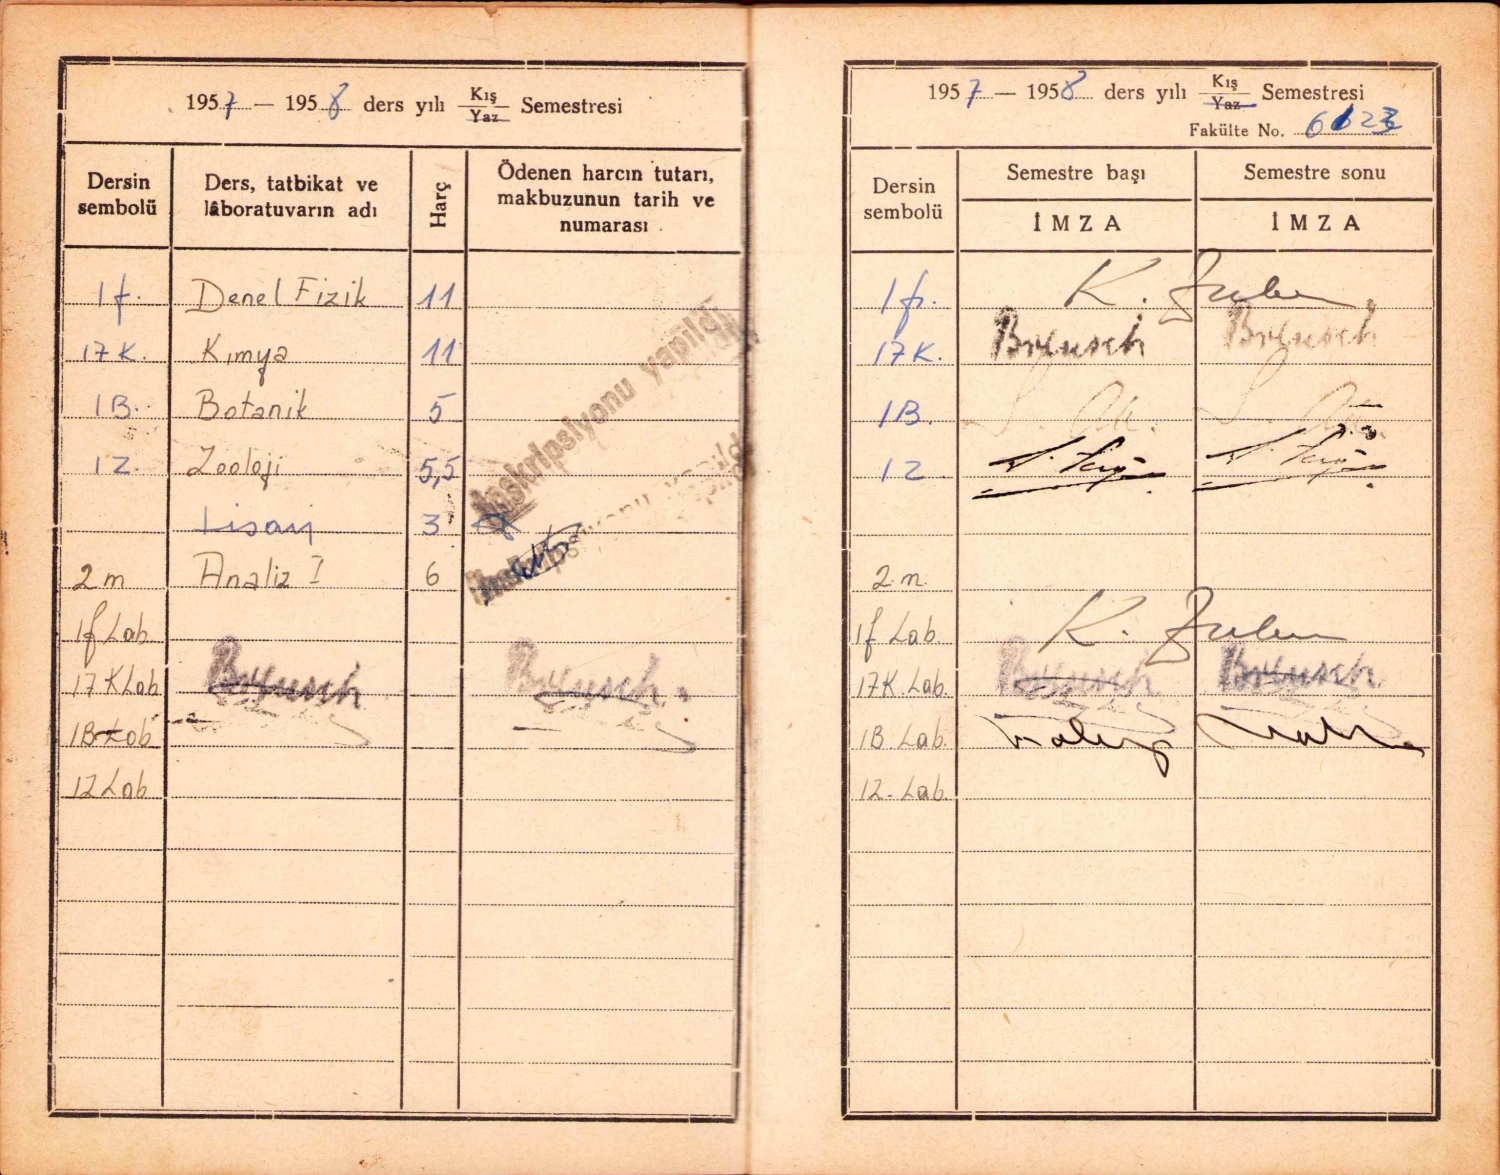 1957 — 1958 ders yılı Kış Yaz Semestresi
Dersin sembolü Ders, tatbikat ve lâboratuvarın adı Harç Ödenen harcın tutarı, makbuzunun tarih ve numarası
1f. Denel Fizik 11
17K. Kımya 11
1B. Botanik 5
1Z. Zooloji 5,5
Lisan 3
2m Analiz I 6
1f Lab.
17K Lab Breusch Breusch
1B Lab
1Z Lab
İnskripsiyonu yapıldı
İnskripsiyonu yapıldı
1957 — 1958 ders yılı Kış Yaz Semestresi
Fakülte No. 6123
Dersin sembolü Semestre başı Semestre sonu
İMZA İMZA
1f. K.
17K. Breusch Breusch
1B.
1Z
2m.
1f Lab. K.
17K Lab. Breusch Breusch
1B Lab.
1Z. Lab.